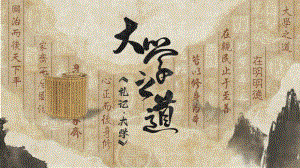 大學之道
在明明德
在親民止于至善
皆以修身為本
大学之道
《礼记·大学》
心正而后身修
國治而后天下平